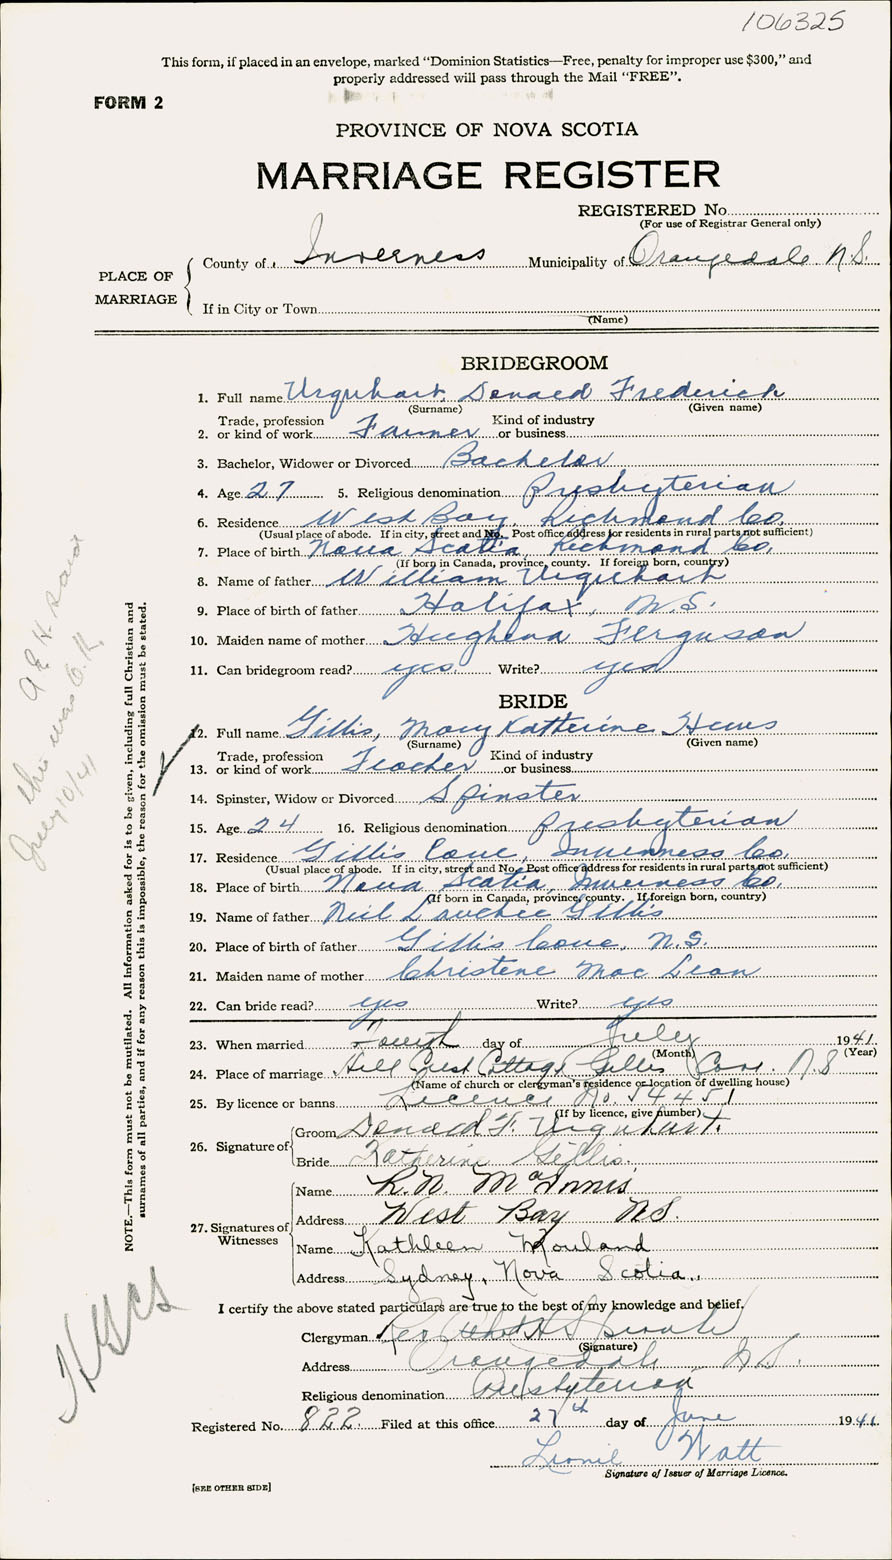 106325
This form, if placed in an envelope, marked "Dominion Statistics—Free, penalty for improper use $300," and
properly addressed will pass through the Mail "FREE".
FORM 2
PROVINCE OF NOVA SCOTIA
MARRIAGE REGISTER
REGISTERED No.
(For use of Registrar General only)
PLACE OF MARRIAGE
County of Inverness Municipality of Orangedale N.S.
If in City or Town
(Name)
BRIDEGROOM
1. Full name Urquhart, Donald Frederick
(Surname) (Given name)
2. Trade, profession or kind of work Farmer Kind of industry or business
3. Bachelor, Widower or Divorced Bachelor
4. Age 27 5. Religious denomination Presbyterian
6. Residence West Bay, Richmond Co.
(Usual place of abode. If in city, street and No. Post office address for residents in rural parts not sufficient)
7. Place of birth Nova Scotia, Richmond Co.
(If born in Canada, province, county. If foreign born, country)
8. Name of father William Urquhart
9. Place of birth of father Halifax, N.S.
10. Maiden name of mother Hughena Ferguson
11. Can bridegroom read? yes. Write? yes
BRIDE
12. Full name Gillis, Mary Katherine
(Surname) (Given name)
13. Trade, profession or kind of work Teacher Kind of industry or business
14. Spinster, Widow or Divorced Spinster
15. Age 24 16. Religious denomination Presbyterian
17. Residence Gillis Cove, Inverness Co.
(Usual place of abode. If in city, street and No. Post office address for residents in rural parts not sufficient)
18. Place of birth Nova Scotia, Inverness Co.
(If born in Canada, province, county. If foreign born, country)
19. Name of father Neil Gillis
20. Place of birth of father Gillis Cove, N.S.
21. Maiden name of mother Christene Mac Lean
22. Can bride read? yes Write? yes
23. When married day of July 1941
(Month) (Year)
24. Place of marriage Hill Crest Cottage Gillis Cove. N.S
(Name of church or clergyman's residence or location of dwelling house)
25. By licence or banns Licence No. 54451
(If by licence, give number)
26. Signature of
Groom Donald F. Urquhart.
Bride Katherine Gillis.
27. Signatures of Witnesses
Name R.N. McInnis
Address West Bay NS.
Name Kathleen
Address Sydney, Nova Scotia.
I certify the above stated particulars are true to the best of my knowledge and belief.
Clergyman
(Signature)
Address Orangedale N.S.
Religious denomination Presbyterian
Registered No. 822. Filed at this office 27th day of June 1941
Watt
Signature of Issuer of Marriage Licence.
[SEE OTHER SIDE]
NOTE.—This form must not be mutilated. All information asked for is to be given, including full Christian and
surnames of all parties, and if for any reason this is impossible, the reason for the omission must be stated.
said
this was O.K.
July 10/41